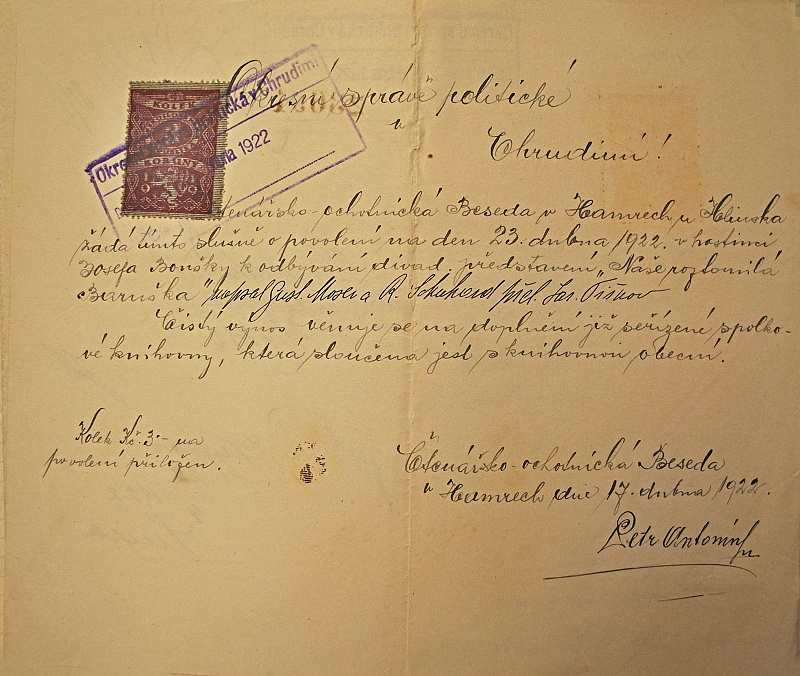 Okresní správě politické
v
Chrudimi!
Okre ická v Chrudimi
KOLEK
na 1922
KORUNY
čtenářsko-ochotnická Beseda v Hamrech u Hlinska
žádá tímto slušně o povolení na den 23. dubna 1922. v hostinci
Josefa Boušky k odbývání divad. představení „Naše roztomilá
Baruška" napsal Gust. Moser a R. přel. Jos.
Čistý výnos věnuje se na doplnění již seřízené spolko-
vé knihovny, která sloučena jest s knihovnou obecní.
Kolek Kč. 3·- na
povolení přiložen.
Čtenářsko-ochotnická Beseda
v Hamrech dne 17. dubna 1922.
Petr Antonín